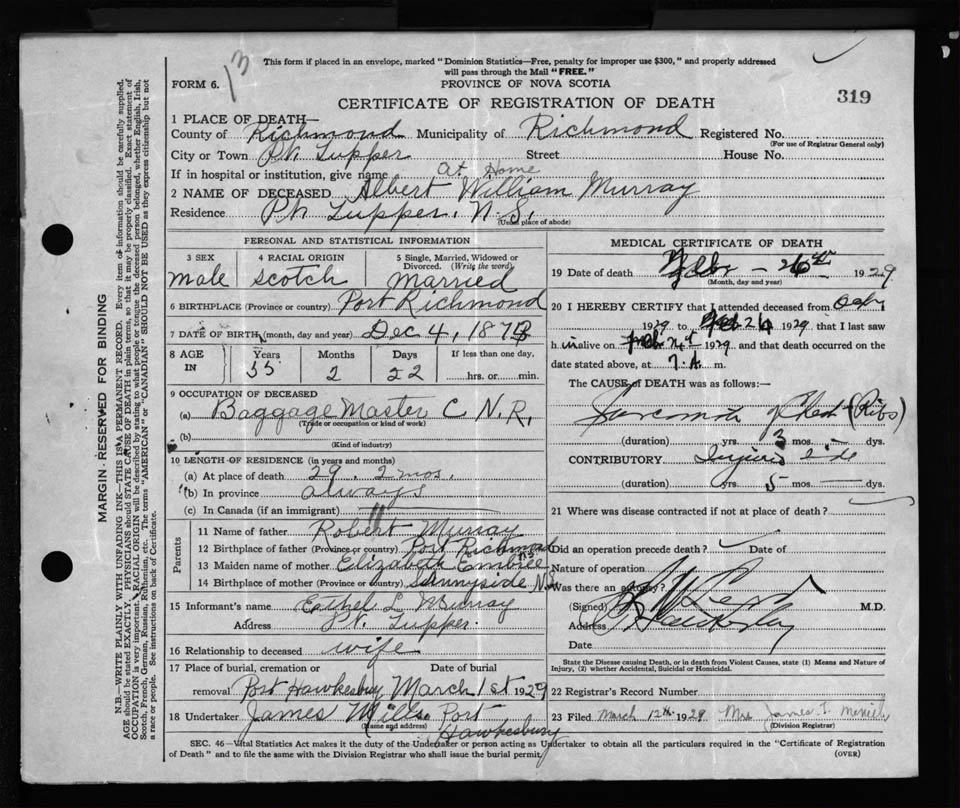 This form if placed in an envelope, marked "Dominion Statistics—Free, penalty for improper use $300," and properly addressed
will pass through the Mail "FREE."
FORM 6.
13
PROVINCE OF NOVA SCOTIA
CERTIFICATE OF REGISTRATION OF DEATH
319
1 PLACE OF DEATH—
County of Richmond Municipality of Richmond Registered No.
(For use of Registrar General only)
City or Town Pt. Tupper Street House No.
If in hospital or institution, give name At Home
2 NAME OF DECEASED Albert William Murray
Residence Pt. Tupper, N.S.
(Usual place of abode)
PERSONAL AND STATISTICAL INFORMATION
3 SEX 4 RACIAL ORIGIN 5 Single, Married, Widowed or
Divorced. (Write the word)
male Scotch Married
6 BIRTHPLACE (Province or country) Port Richmond
7 DATE OF BIRTH (month, day and year) Dec 4, 1873
8 AGE IN Years Months Days If less than one day,
55 2 22 hrs. or min.
9 OCCUPATION OF DECEASED
(a) Baggage Master C.N.R.
(Trade or occupation or kind of work)
(b)
(Kind of industry)
10 LENGTH OF RESIDENCE (in years and months)
(a) At place of death 29. 2 mos.
(b) In province always
(c) In Canada (if an immigrant)
Parents
11 Name of father Robert Murray
12 Birthplace of father (Province or country) Port Richmond N.S.
13 Maiden name of mother Elizabeth Embree
14 Birthplace of mother (Province or country) Sunnyside N.S.
15 Informant's name Eathel L Murray
Address Pt. Tupper.
16 Relationship to deceased wife
17 Place of burial, cremation or Date of burial
removal Port Hawkesbury March 1st 1929
18 Undertaker James Mills Port
(Name and address)
Hawkesbury
MEDICAL CERTIFICATE OF DEATH
19 Date of death Feby - 26th 1929
(Month, day and year)
20 I HEREBY CERTIFY that I attended deceased from
1929 to Feb 26 1929, that I last saw
h im alive on Feb 1929 and that death occurred on the
date stated above, at 7. A. m.
The CAUSE of DEATH was as follows:—
Sarcoma of Chest (Ribs)
(duration) yrs. 3 mos. — dys.
CONTRIBUTORY Injuries side
(duration) yrs 5 mos. — dys.
21 Where was disease contracted if not at place of death?
Did an operation precede death? Date of
Nature of operation
Was there an autopsy?
(Signed) M.D.
Address Hawkesbury
Date
State the Disease causing Death, or in death from Violent Causes, state (1) Means and Nature of
Injury, (2) whether Accidental, Suicidal or Homicidal.
22 Registrar's Record Number
23 Filed March 12th 1929 Mrs James T.
(Division Registrar)
SEC. 46—Vital Statistics Act makes it the duty of the Undertaker or person acting as Undertaker to obtain all the particulars required in the "Certificate of Registration
of Death" and to file the same with the Division Registrar who shall issue the burial permit.
(OVER)
MARGIN RESERVED FOR BINDING
N.B.—WRITE PLAINLY, WITH UNFADING INK—THIS IS A PERMANENT RECORD. Every item of information should be carefully supplied.
AGE should be stated EXACTLY. PHYSICIANS should STATE CAUSE OF DEATH in plain terms, so that it may be properly classified. Exact statement of
OCCUPATION is very important. RACIAL ORIGIN will be described by stating to what people or tongue the deceased person belonged, whether English, Irish,
Scotch, French, German, Russian, Ruthenian, etc. The terms "AMERICAN" or "CANADIAN" SHOULD NOT BE USED as they express citizenship but not
a race or people. See instructions on back of Certificate.